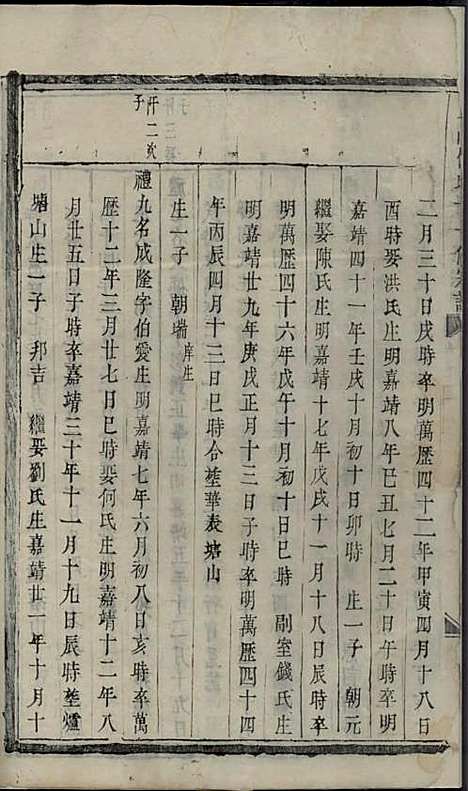 二月三十日戌時卒明萬歷四十二年甲寅四月十八日
酉時娶洪氏生明嘉靖八年己丑七月二十日午時卒明
嘉靖四十一年壬戌十月初十日卯時 生一子 朝元
繼娶陳氏生明嘉靖十七年戊戌十一月十八日辰時卒
明萬歷四十六年戊午十月初十日巳時 副室錢氏生
明嘉靖廿九年庚戌正月十三日子時卒明萬歷四十四
年丙辰四月十三日巳時合塟華表塘山
生一子 朝瑞 庠生
禮九名成隆字伯愛生明嘉靖七年六月初八日亥時卒萬
歷十二年三月廿七日巳時娶何氏生明嘉靖十二年八
月廿五日子時卒嘉靖三十年十一月十九日辰時塟爐
塘山生一子 邦吉 繼娶劉氏生嘉靖廿一年十月十
仟二次
子